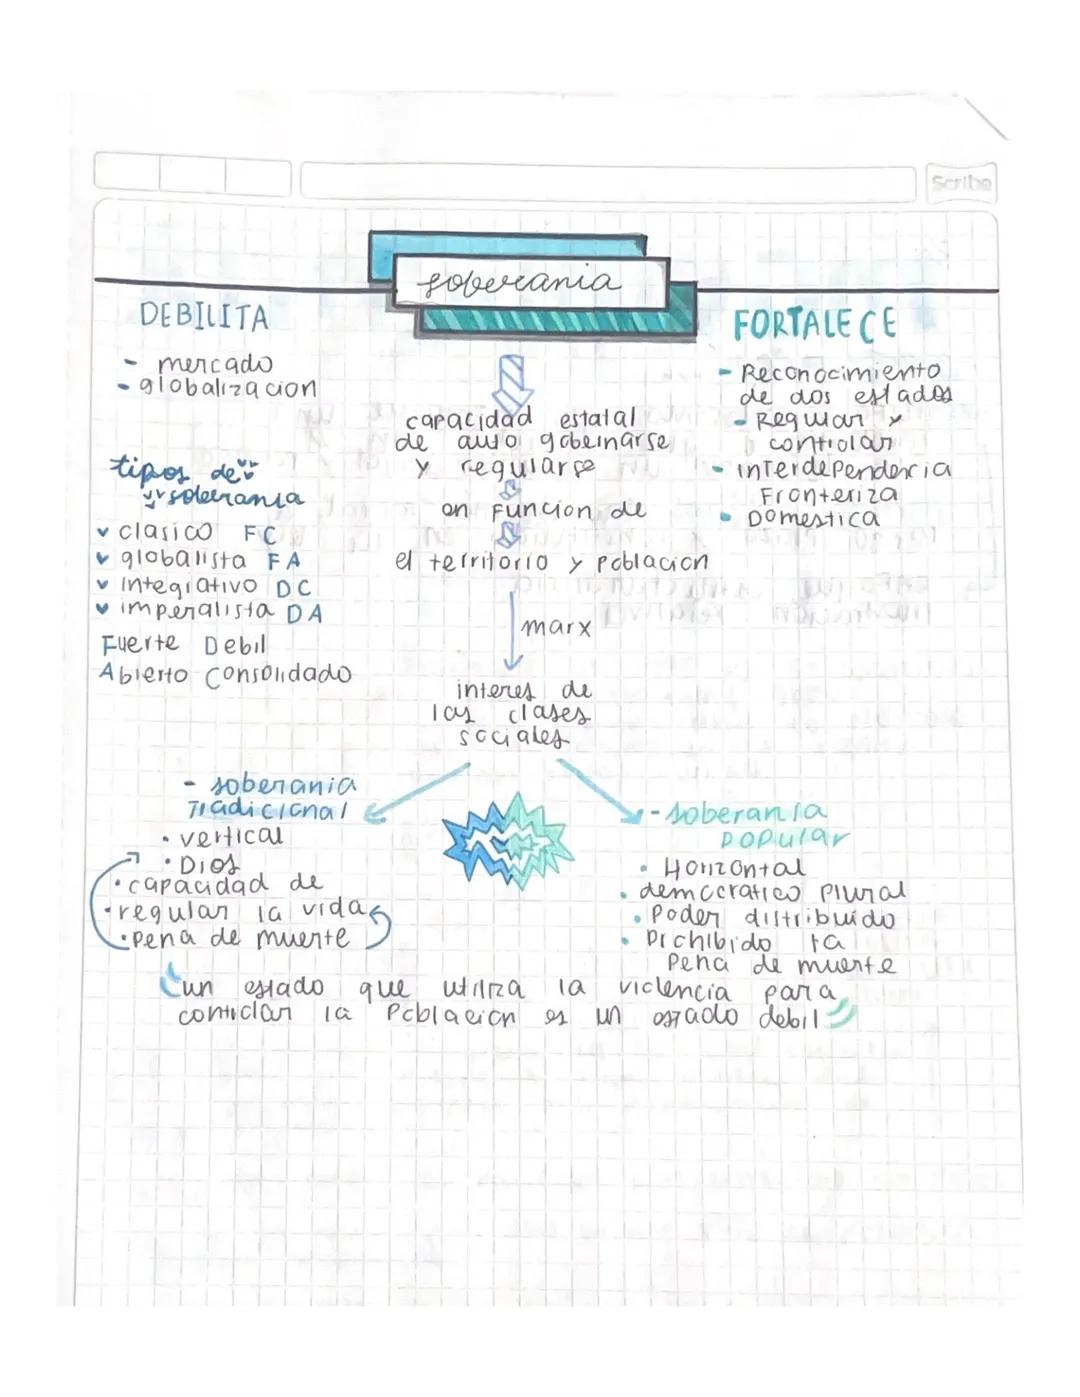 Scribe
soberania
DEBILITA
- mercado
- globalizacion
tipos de
soberania
clasico FC
globalista FA
integrativo DC
imperalista DA
Fuerte Debil
Abierto Consolidado
capacidad estatal
de auto gobernarse
y regularse
en Funcion de
el territorio y Poblacion
marx
interes de
las clases
sociales
FORTALECE
- Reconocimiento
de dos estados
- Regular y
controlar
- interdependencia
Fronteriza
- Domestica
- soberania
Tradicional
• vertical
• Dios
• capacidad de
• regular la vida
• Pena de muerte
- soberania
popular
• Horizontal
• democratico Plural
• Poder distribuido
• Prohibido la
Pena de muerte
un estado que utiliza la violencia para
controlar la Poblacion es un estado debil